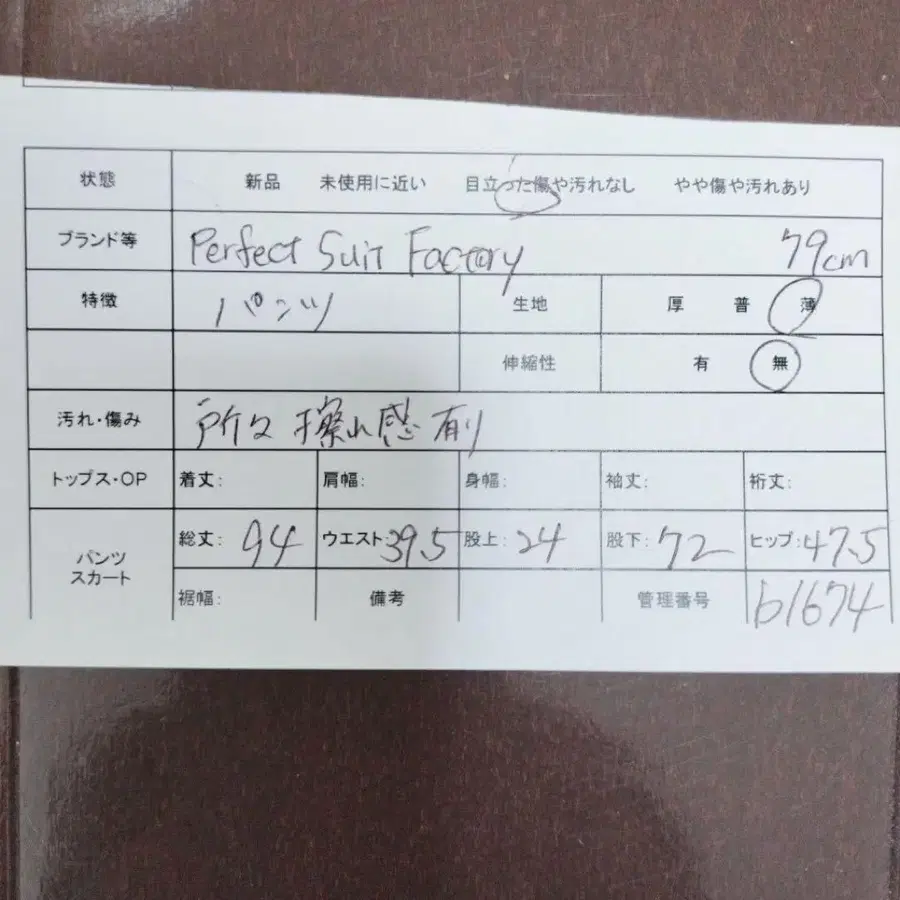 状態 新品 未使用に近い 目立った傷や汚れなし やや傷や汚れあり
ブランド等 Perfect Suit Factory 79cm
特徴 パンツ 生地 厚 普 薄
伸縮性 有 無
汚れ・傷み 所々擦れ感有り
トップス・OP 着丈: 肩幅: 身幅: 袖丈: 裄丈:
パンツ スカート 総丈: 94 ウエスト:39.5 股上: 24 股下: 72 ヒップ:47.5
裾幅: 備考 管理番号 b1674